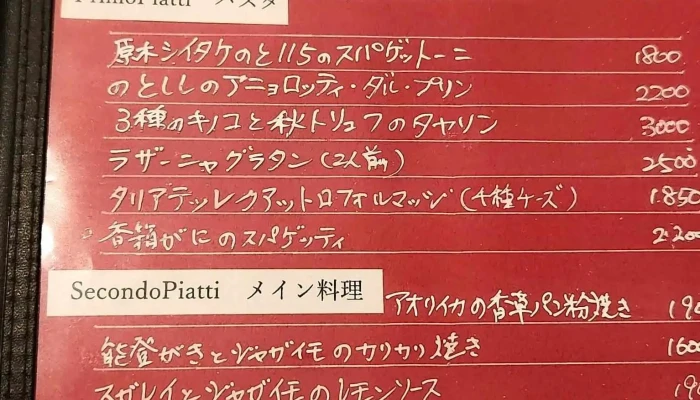 PrimoPiatti パスタ
原木シイタケのと115のスパゲットーニ 1800
のとししのアニョロッティ・ダル・プリン 2200
3種のキノコと秋トリュフのタヤリン 3000
ラザーニャグラタン(2人前) 2500
タリアテッレクアットロフォルマッジ(4種チーズ) 1.850
香箱がにのスパゲッティ 2.200
SecondoPiatti メイン料理
アオリイカの香草パン粉焼き
能登がきとジャガイモのカリカリ焼き 1600
スガレイとジャガイモのレモンソース